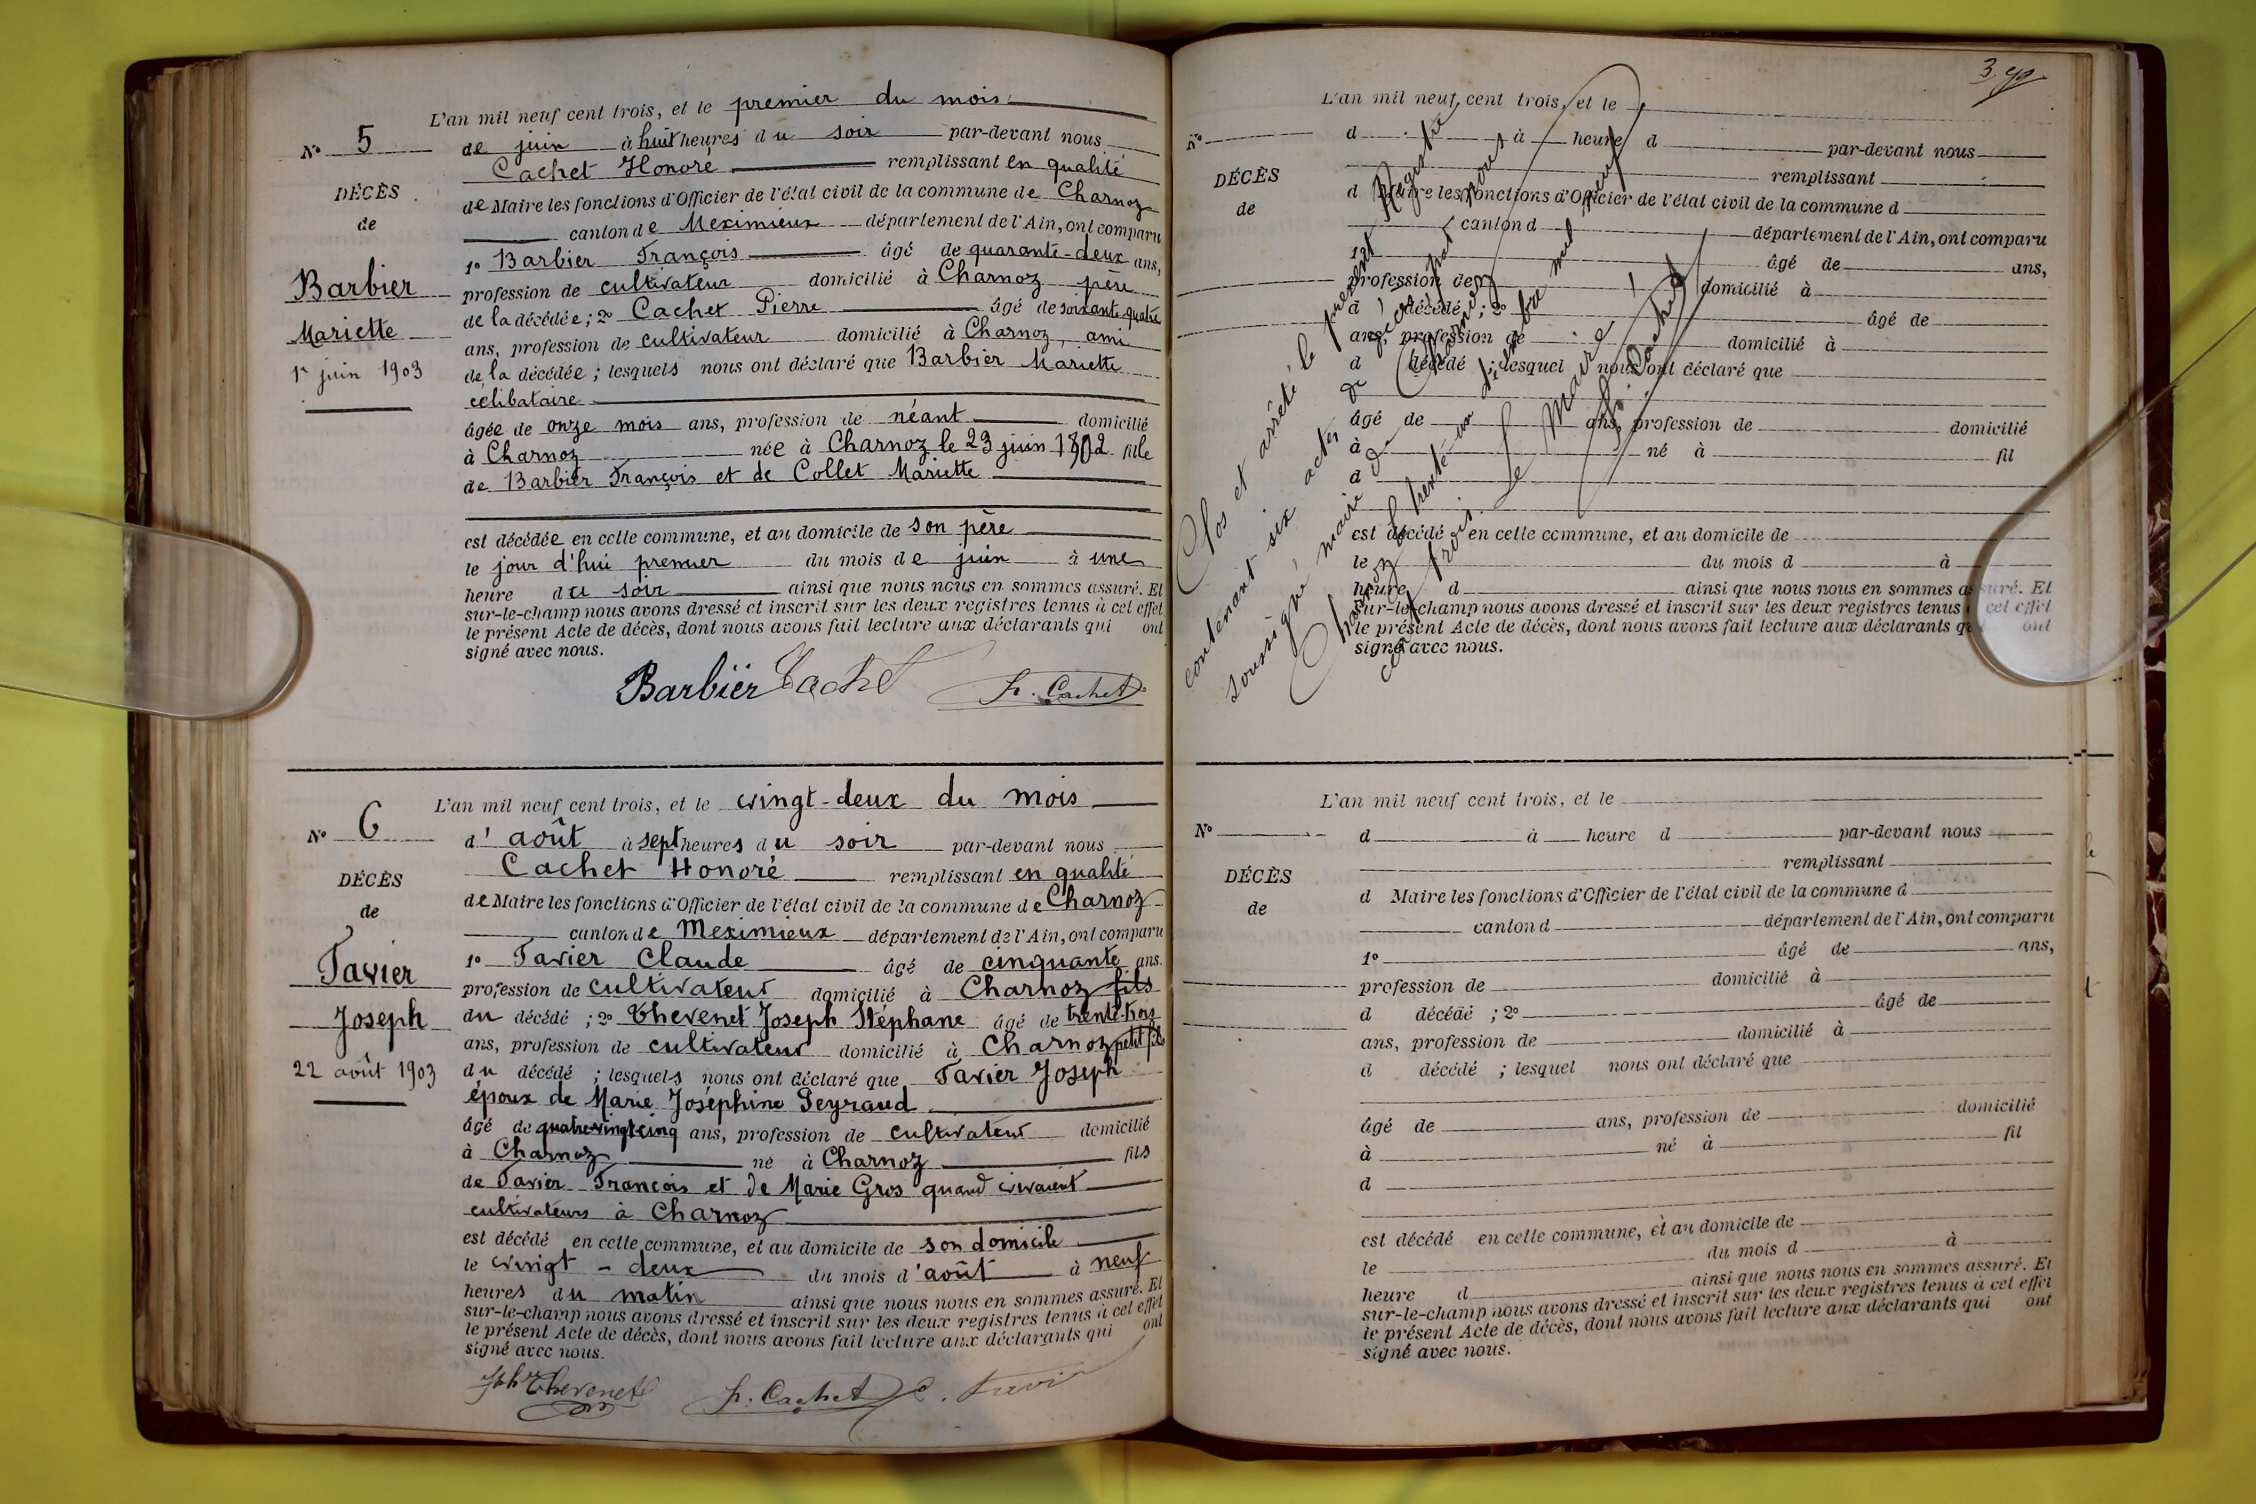 L'an mil neuf cent trois, et le premier du mois
N° 5
de juin à huit heures du soir par-devant nous
Cachet Honoré remplissant en qualité
DÉCÈS
de Maire les fonctions d'Officier de l'état civil de la commune de Charnoz
de
canton de Meximieux département de l'Ain, ont comparu
1° Barbier François âgé de quarante-deux ans,
Barbier
profession de cultivateur domicilié à Charnoz père
de la décédée ; 2° Cachet Pierre âgé de soixante quatre
Mariette
ans, profession de cultivateur domicilié à Charnoz, ami
1er juin 1903
de la décédée ; lesquels nous ont déclaré que Barbier Mariette
célibataire
âgée de onze mois ans, profession de néant domicilié
à Charnoz née à Charnoz le 23 juin 1902 fille
de Barbier François et de Collet Mariette
est décédée en cette commune, et au domicile de son père
le jour d'hui premier du mois de juin à une
heure du soir ainsi que nous nous en sommes assuré. Et
sur-le-champ nous avons dressé et inscrit sur les deux registres tenus à cet effet
le présent Acte de décès, dont nous avons fait lecture aux déclarants qui ont
signé avec nous.
Barbier Cachet h. Cachet
L'an mil neuf cent trois, et le vingt-deux du mois
N° 6
d'août à sept heures du soir par-devant nous
Cachet Honoré remplissant en qualité
DÉCÈS
de Maire les fonctions d'Officier de l'état civil de la commune de Charnoz
de
canton de Meximieux département de l'Ain, ont comparu
1° Tavier Claude âgé de cinquante ans.
Tavier
profession de cultivateur domicilié à Charnoz fils
Joseph
du décédé ; 2° Thevenet Joseph Stéphane âgé de trente-trois
ans, profession de cultivateur domicilié à Charnoz petit fils
22 août 1903
du décédé ; lesquels nous ont déclaré que Tavier Joseph
époux de Marie Joséphine Peyraud
âgé de quatre-vingt-cinq ans, profession de cultivateur domicilié
à Charnoz né à Charnoz fils
de Tavier François et de Marie Gros quand vivaient
cultivateurs à Charnoz
est décédé en cette commune, et au domicile de son domicile
le vingt-deux du mois d'août à neuf
heures du matin ainsi que nous nous en sommes assuré. Et
sur-le-champ nous avons dressé et inscrit sur les deux registres tenus à cet effet
le présent Acte de décès, dont nous avons fait lecture aux déclarants qui ont
signé avec nous.
Jph Thevenet h. Cachet C. Tavier
L'an mil neuf cent trois, et le
N°
d à heure d par-devant nous
remplissant
DÉCÈS
d Maire les fonctions d'Officier de l'état civil de la commune d
de
canton d département de l'Ain, ont comparu
1° âgé de ans,
profession de domicilié à
d décédé ; 2° âgé de
ans, profession de domicilié à
d décédé ; lesquel nous ont déclaré que
âgé de ans, profession de domicilié
à né à fil
d
est décédé en cette commune, et au domicile de
le du mois d à
heure d ainsi que nous nous en sommes assuré. Et
sur-le-champ nous avons dressé et inscrit sur les deux registres tenus à cet effet
le présent Acte de décès, dont nous avons fait lecture aux déclarants qui ont
signé avec nous.
Clos et arrêté le présent Registre
contenant six actes de décès par nous
soussigné maire de Charnoz
Charnoz le trente un décembre mil neuf
cent trois.
Le Maire
h. Cachet
L'an mil neuf cent trois, et le
N°
d à heure d par-devant nous
remplissant
DÉCÈS
d Maire les fonctions d'Officier de l'état civil de la commune d
de
canton d département de l'Ain, ont comparu
1° âgé de ans,
profession de domicilié à
d décédé ; 2° âgé de
ans, profession de domicilié à
d décédé ; lesquel nous ont déclaré que
âgé de ans, profession de domicilié
à né à fil
d
est décédé en cette commune, et au domicile de
le du mois d à
heure d ainsi que nous nous en sommes assuré. Et
sur-le-champ nous avons dressé et inscrit sur les deux registres tenus à cet effet
le présent Acte de décès, dont nous avons fait lecture aux déclarants qui ont
signé avec nous.